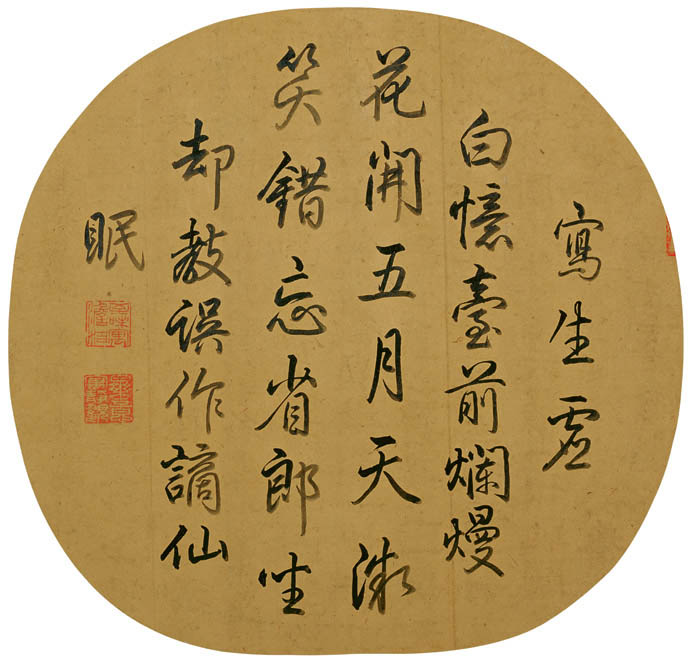 寫生虛
白憶臺前爛熳
花開五月天
笑錯忘省郎坐
却教誤作謫仙
眠